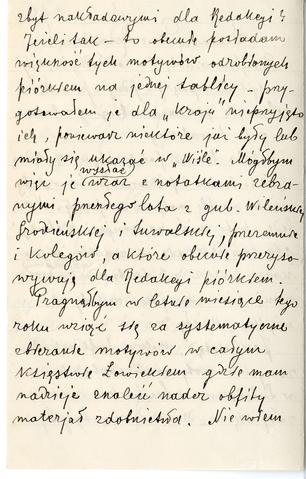 zbyt nakładowymi dla Redakcyi?
Jeżeli tak – to obecnie posiadam
większość tych motywów odrobionych
piórkiem na jednej tablicy – przy-
gotowałem je dla „Kraju" nieprzyjęto
ich, ponieważ niektóre już były lub
miały się ukazać w „Wiśle". Mógłbym
więc je wysłać wraz z notatkami zebra-
nymi przeszłego lata z gub. Wileńskiej
Grodzieńskiej i Suwalskiej, przezemnie
i kolegów, a które obecnie przeryso-
wywuję dla Redakcyi piórkiem.
Pragnąłbym w letnie miesiące tego
roku wziąć się za systematyczne
zbieranie motywów w całym
Księstwie Łowickiem gdzie mam
nadzieję znaleść nader obfity
materjał zdobnictwa. Nie wiem